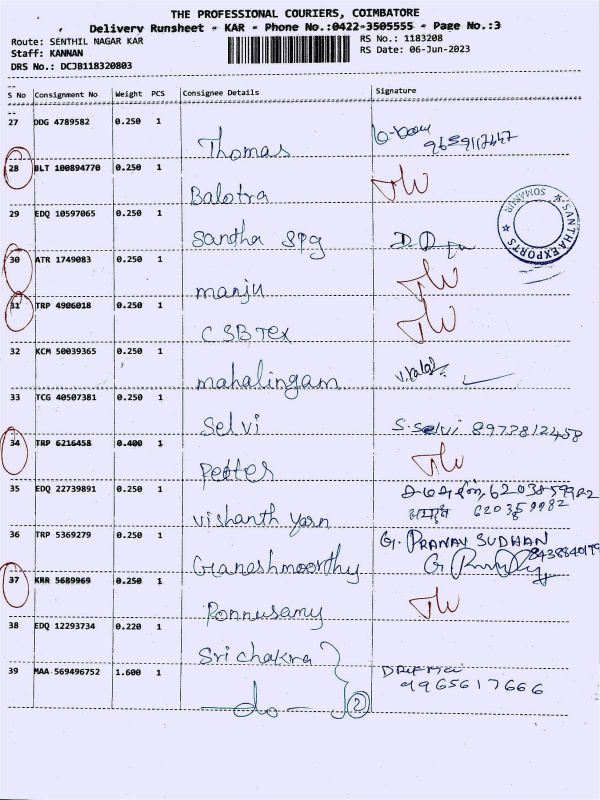 THE PROFESSIONAL COURIERS, COIMBATORE
Delivery Runsheet - KAR - Phone No.:0422-3505555 - Page No.:3
Route: SENTHIL NAGAR KAR RS No.: 1183208
Staff: KANNAN RS Date: 06-Jun-2023
DRS No.: DCJB118320803
S No Consignment No Weight PCS Consignee Details Signature
27 DDG 4789582 0.250 1
Thomas
28 BLT 100894770 0.250 1
Balotra
29 EDQ 10597065 0.250 1
Santha Spg
SANTHA EXPORTS
SOMANUR
30 ATR 1749083 0.250 1
manju
31 TRP 4906018 0.250 1
CSB Tex
32 KCM 50039365 0.250 1
mahalingam
33 TCG 40507381 0.250 1
Selvi S. Selvi 8973812458
34 TRP 6216458 0.400 1
Petter
35 EDQ 22739891 0.250 1 6203859982
vishanth yarn 6203859982
36 TRP 5369279 0.250 1 G. PRANAV SUDHAN
Ganeshmoorthy
37 KRR 5689969 0.250 1
Ponnusamy
38 EDQ 12293734 0.220 1
Sri chakra
39 MAA 569496752 1.600 1
9965617666
-do- 2